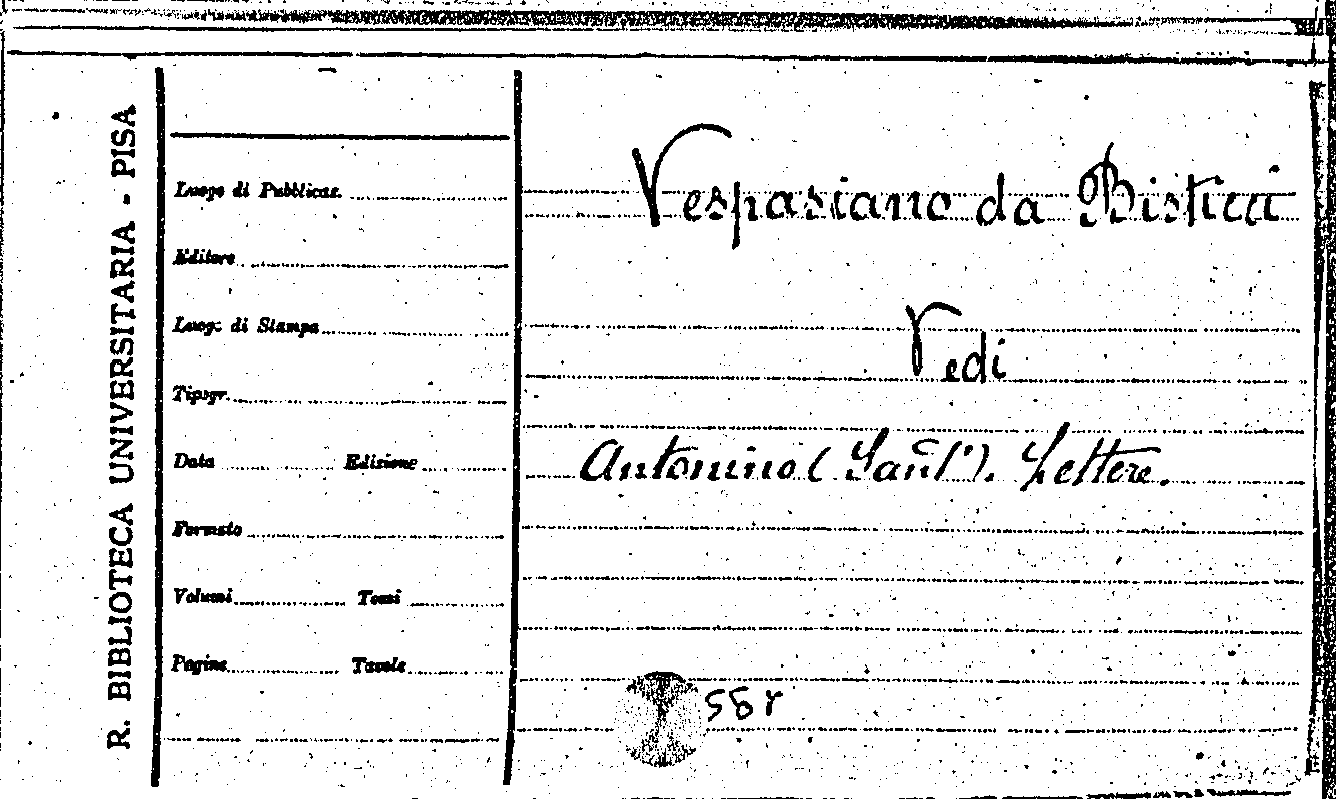 R. BIBLIOTECA UNIVERSITARIA - PISA
Luogo di Pubblicaz.
Editore
Luog. di Stampa
Tipogr.
Data Edizione
Formato
Volumi Tomi
Pagine Tavole
Vespasiano da Bisticci
Vedi
Antonino (Sant'). Lettere.
58r